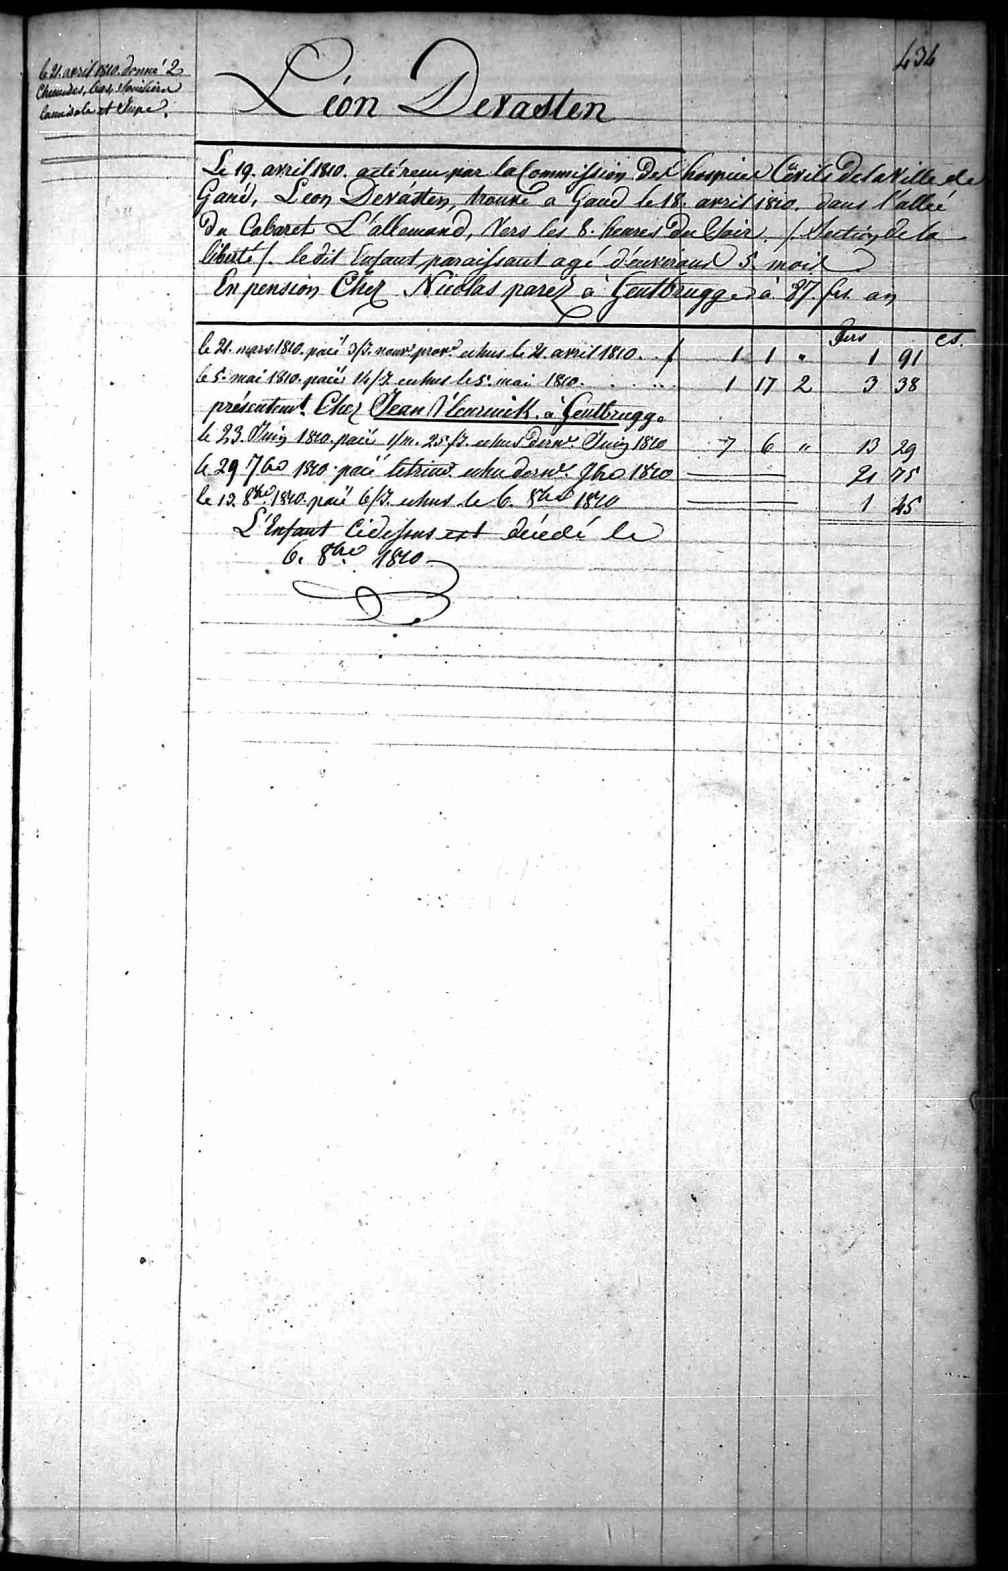 434
le 21. avril 1810. donné 2
Chemises, bas,
Camisole et Jupe.
Léon Devasten
Le 19. avril 1810. a été reçu par la Commission des hospices Civils de la Ville de
Gand, Leon Devasten, trouvé a Gand le 18. avril 1810. dans l'allée
du Cabaret L'allemand, vers les 8. heures du Soir. /. Section de la
liberté /. le dit Enfant paraissant agé d'environs 5 mois
En pension Chez Nicolas parez à Gentbrugge à 87. frs. an
frs cs.
le 21. mars 1810. paié 3/J. nour. prov. echus le 21. avril 1810. f 1 1 " 1 91
le 5. mai 1810. paié 14/J. echus le 5. mai 1810. 1 17 2 3 38
présentemt. Chez Jean à Gentbrugge
le 23. Juin 1810. paié 1/m. 25/J. echus dernr. Juin 1810 7 6 " 13 29
le 29 7bre 1810. paié letrime echu dernr. 7bre 1810 21 75
le 13. 8bre. 1810. paié 6/J. echus le 6. 8bre 1810 1 45
L'Enfant Cidessus est décédé le
6. 8bre 1810